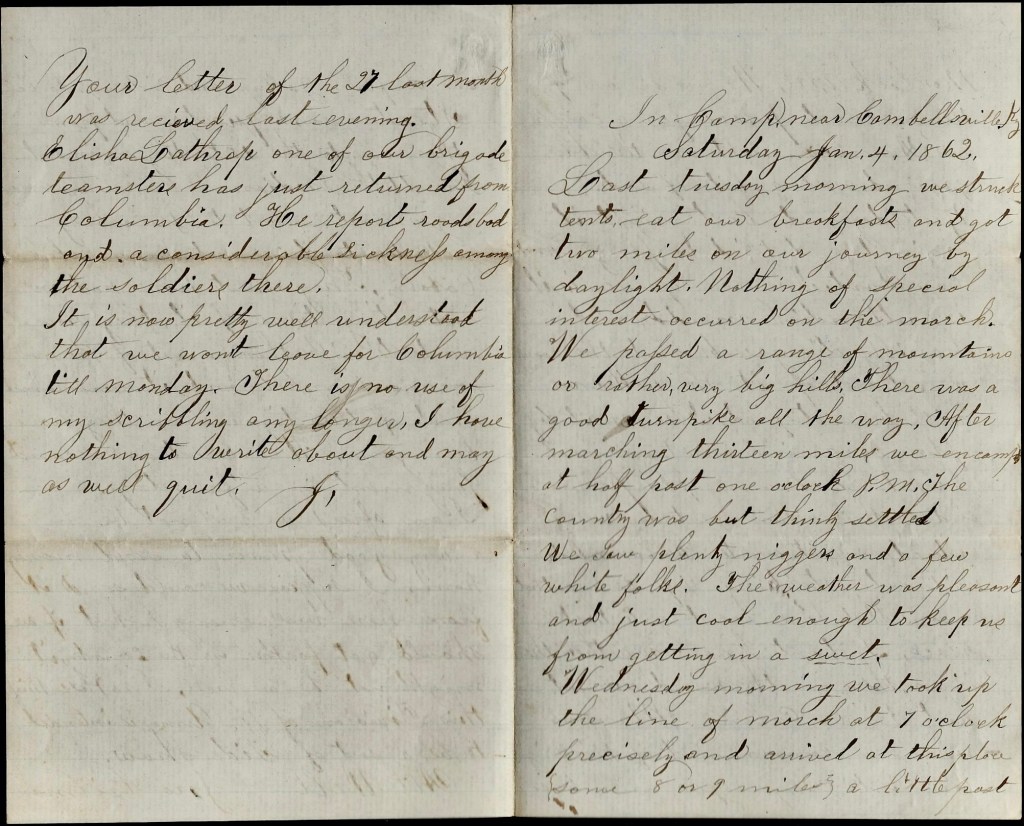 Your letter of the 27 last month
was recieved last evening.
Elisha Lathrop one of our brigade
teamsters has just returned from
Columbia. He report roads bad
and a considerable sickness among
the soldiers there.
It is now pretty well understood
that we wont leave for Columbia
till monday. There is no use of
my scribbling any longer, I have
nothing to write about and may
as well quit. J,
In Camp, near Cambellsville Ky
Saturday Jan. 4. 1862.
Last tuesday morning we struck
tents, eat our breakfasts and got
two miles on our journey by
daylight. Nothing of special
interest occurred on the march.
We passed a range of mountains
or rather, very big hills, There was a
good turnpike all the way. After
marching thirteen miles we encampt
at half past one oclock P.M. The
Country was but thinly settled
We saw plenty niggers and a few
white folks. The weather was pleasant
and just cool enough to keep us
from getting in a swet.
Wednesday morning we took up
the line of march at 7 o'clock
precisely and arrived at this place
{some 8 or 9 miles} a little past